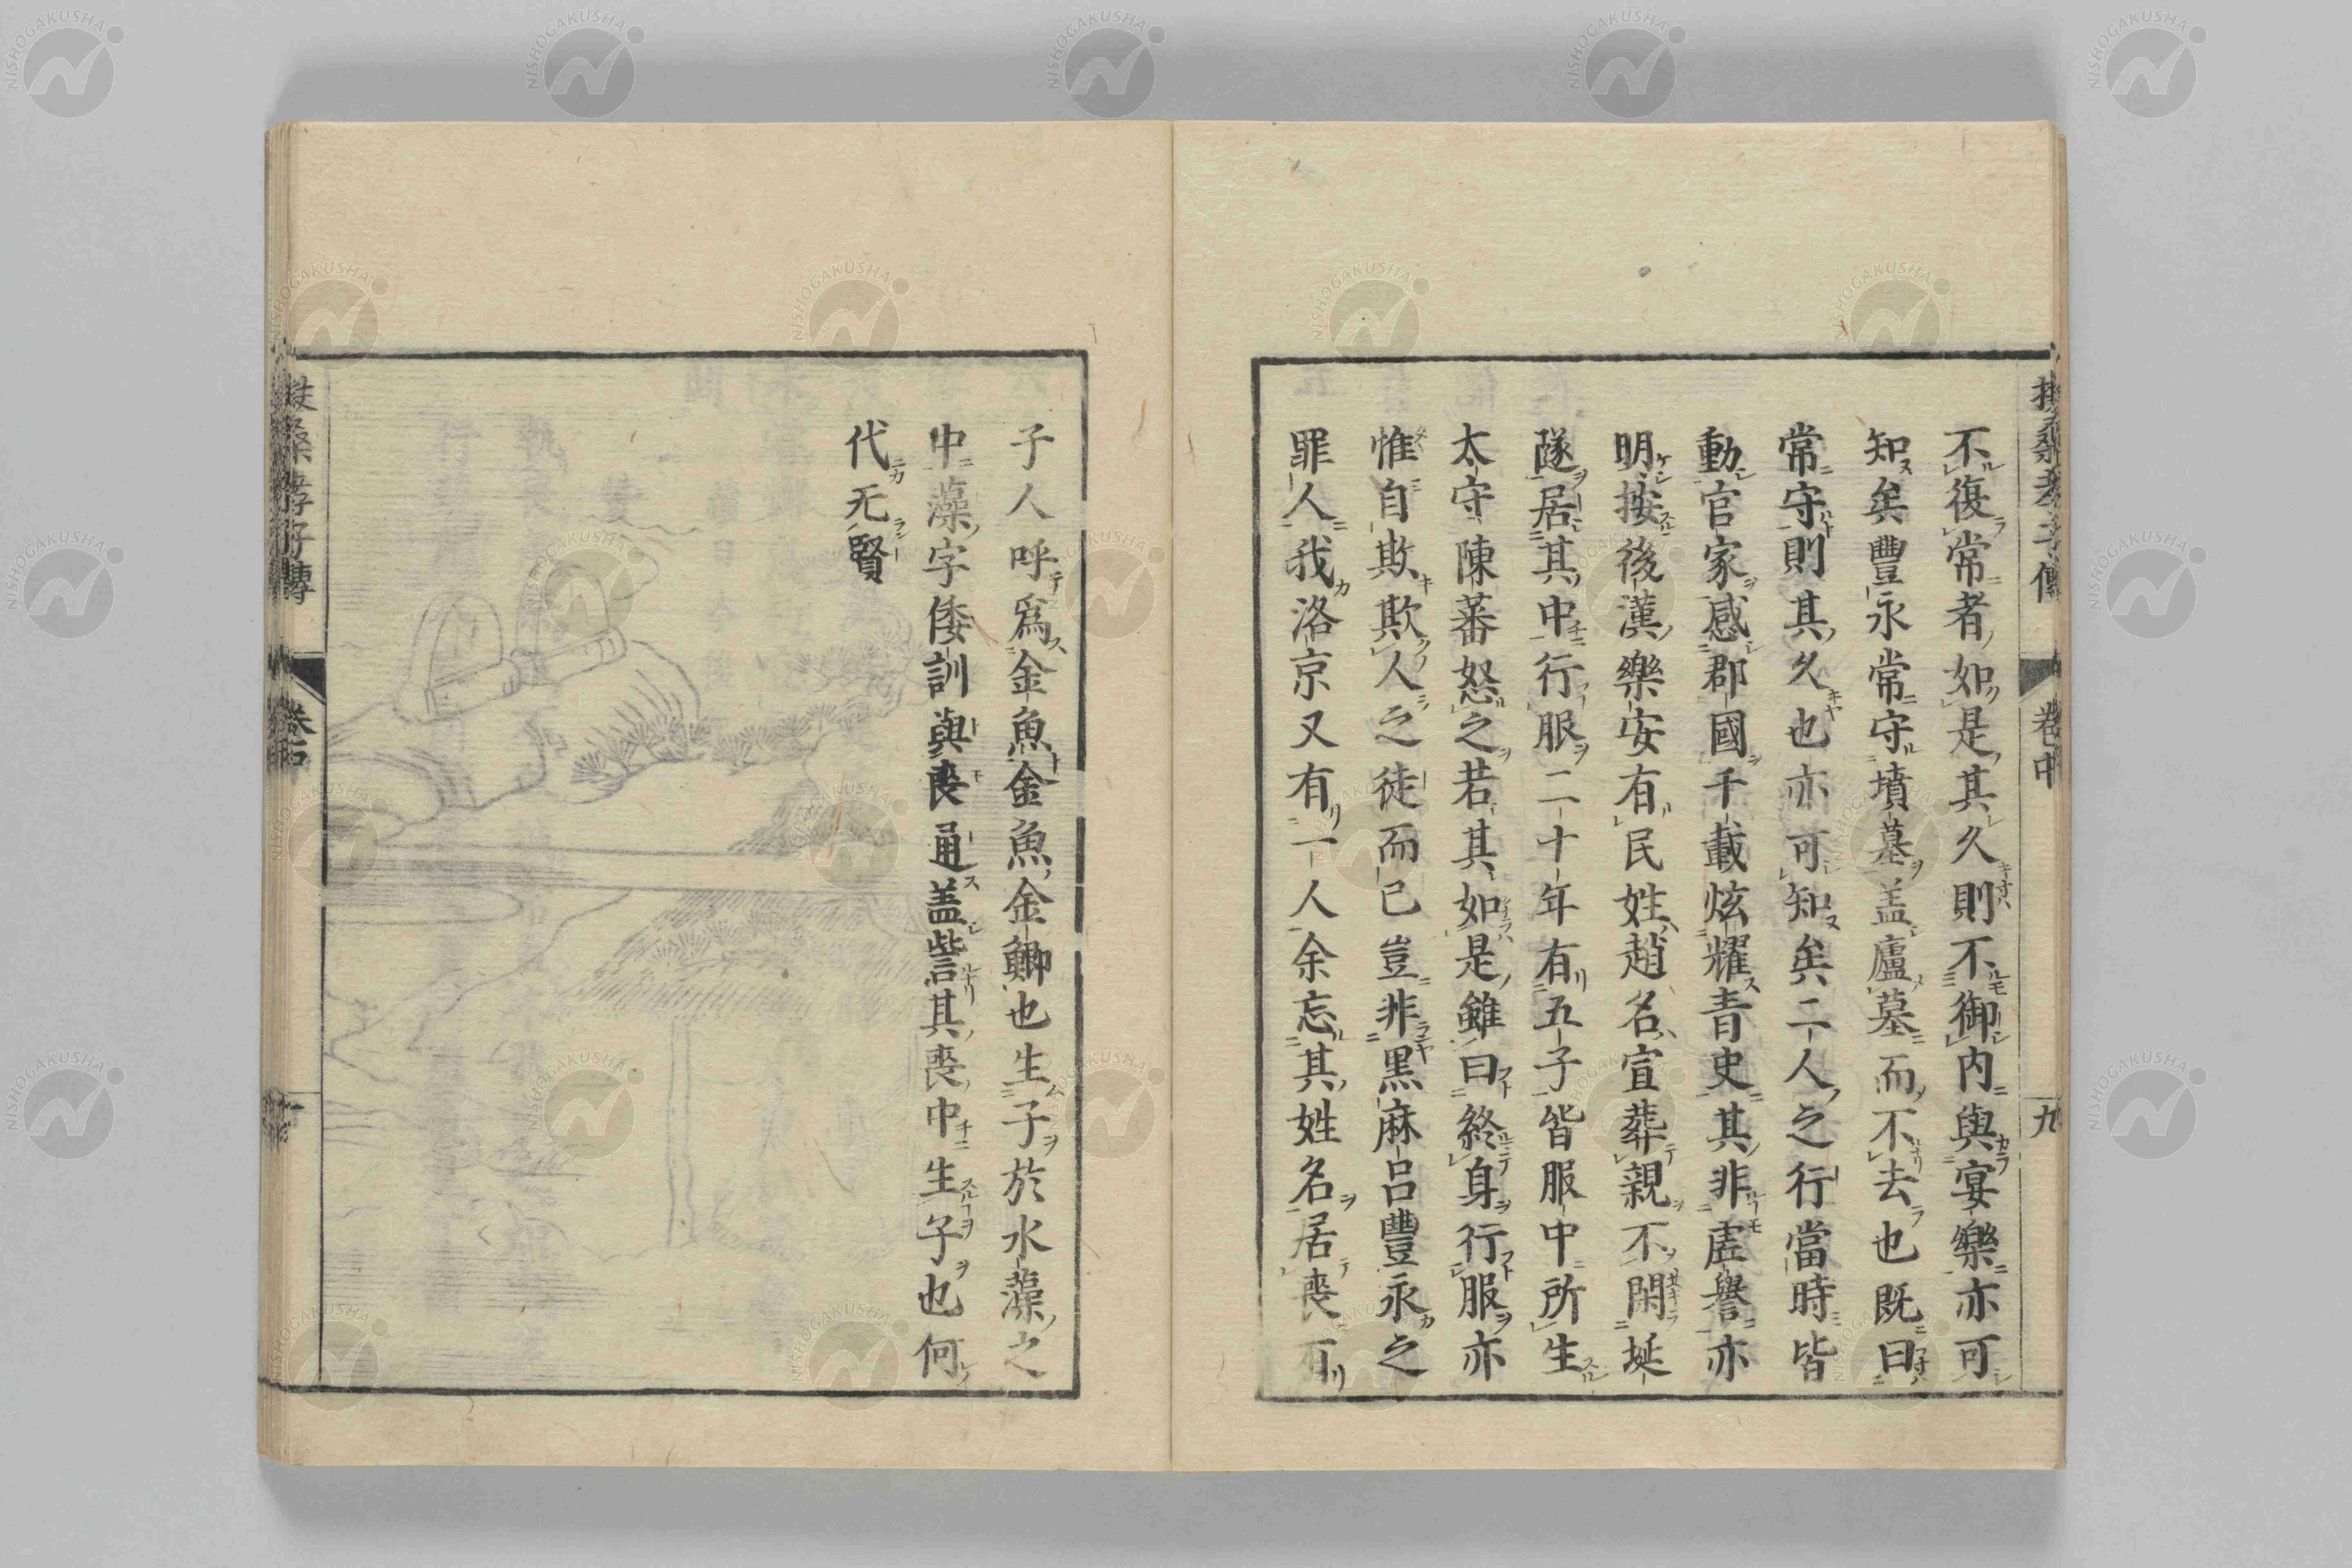 不復常者如是其久則不御内與宴樂亦可
知矣豐永常守墳墓盖廬墓而不去也既曰
常守則其久也亦可知矣二人之行當時皆
動官家感郡國千載炫耀青史其非虚譽亦
明按後漢樂安有民姓趙名宣葬親不閑埏
隧居其中行服二十年有五子皆服中所生
太守陳蕃怒之若其如是雖曰終身行服亦
惟自欺欺人之徒而已豈非黒麻呂豐永之
罪人我洛京又有一人余忘其姓名居喪有
子人呼爲金魚金魚金鯽也生子於水藻之
中藻字倭訓與喪通盖訾其喪中生子也何
代无賢
卷中
九
NISHOGAKUSHA